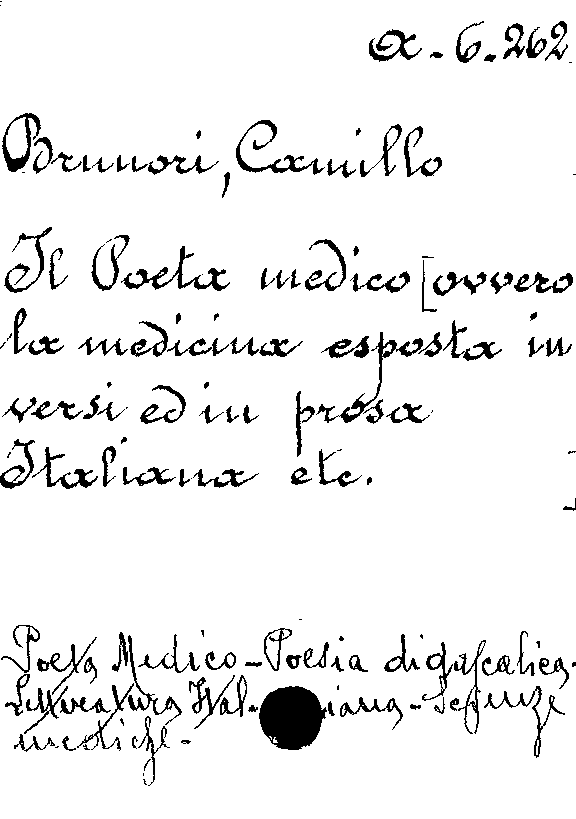 a. 6. 262
Brunori, Camillo
Il Poeta medico [ovvero
la medicina esposta in
versi ed in prosa
Italiana etc.
Poeta Medico - Poesia didascalica.
Letteratura Ital- iana - Scienze
mediche.